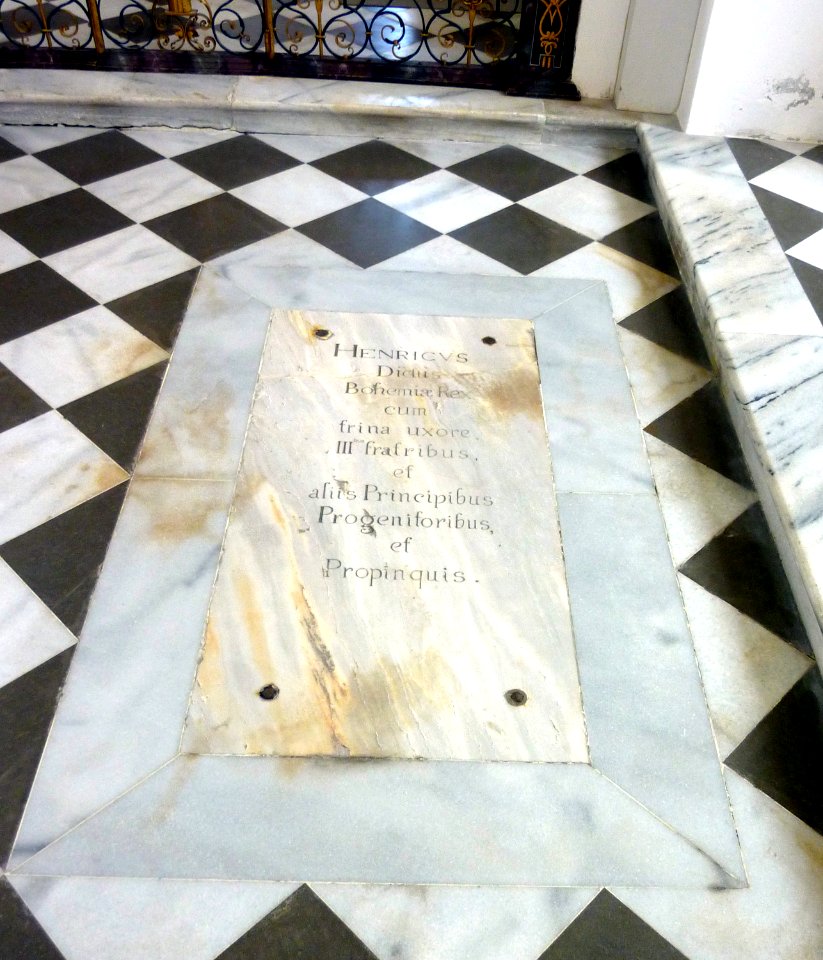 HENRICVS
Dictus
Bohemiæ Rex
cum
trina uxore,
III fratribus,
et
aliis Principibus
Progenitoribus,
et
Propinquis.